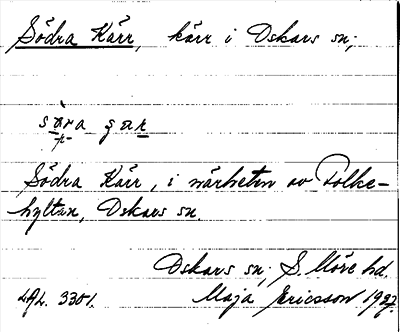 Södra Kärr, kärr i Oskars sn;
Södra Kärr, i närheten av Folke-
hyltan, Oskars sn.
Oskars sn; S. Möre hd.
Maja Ericsson 1927.